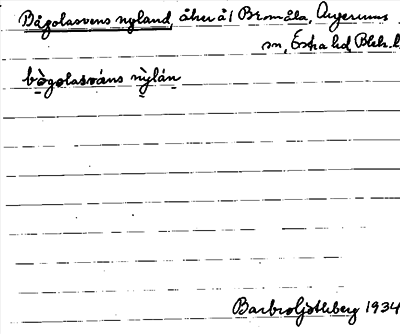 Bågolasvens nyland, åker å 1 Bromåla, Augerums
sn, Östra hd Blek. l
bògolasváns nỳlán
Barbro Ljothberg 1934